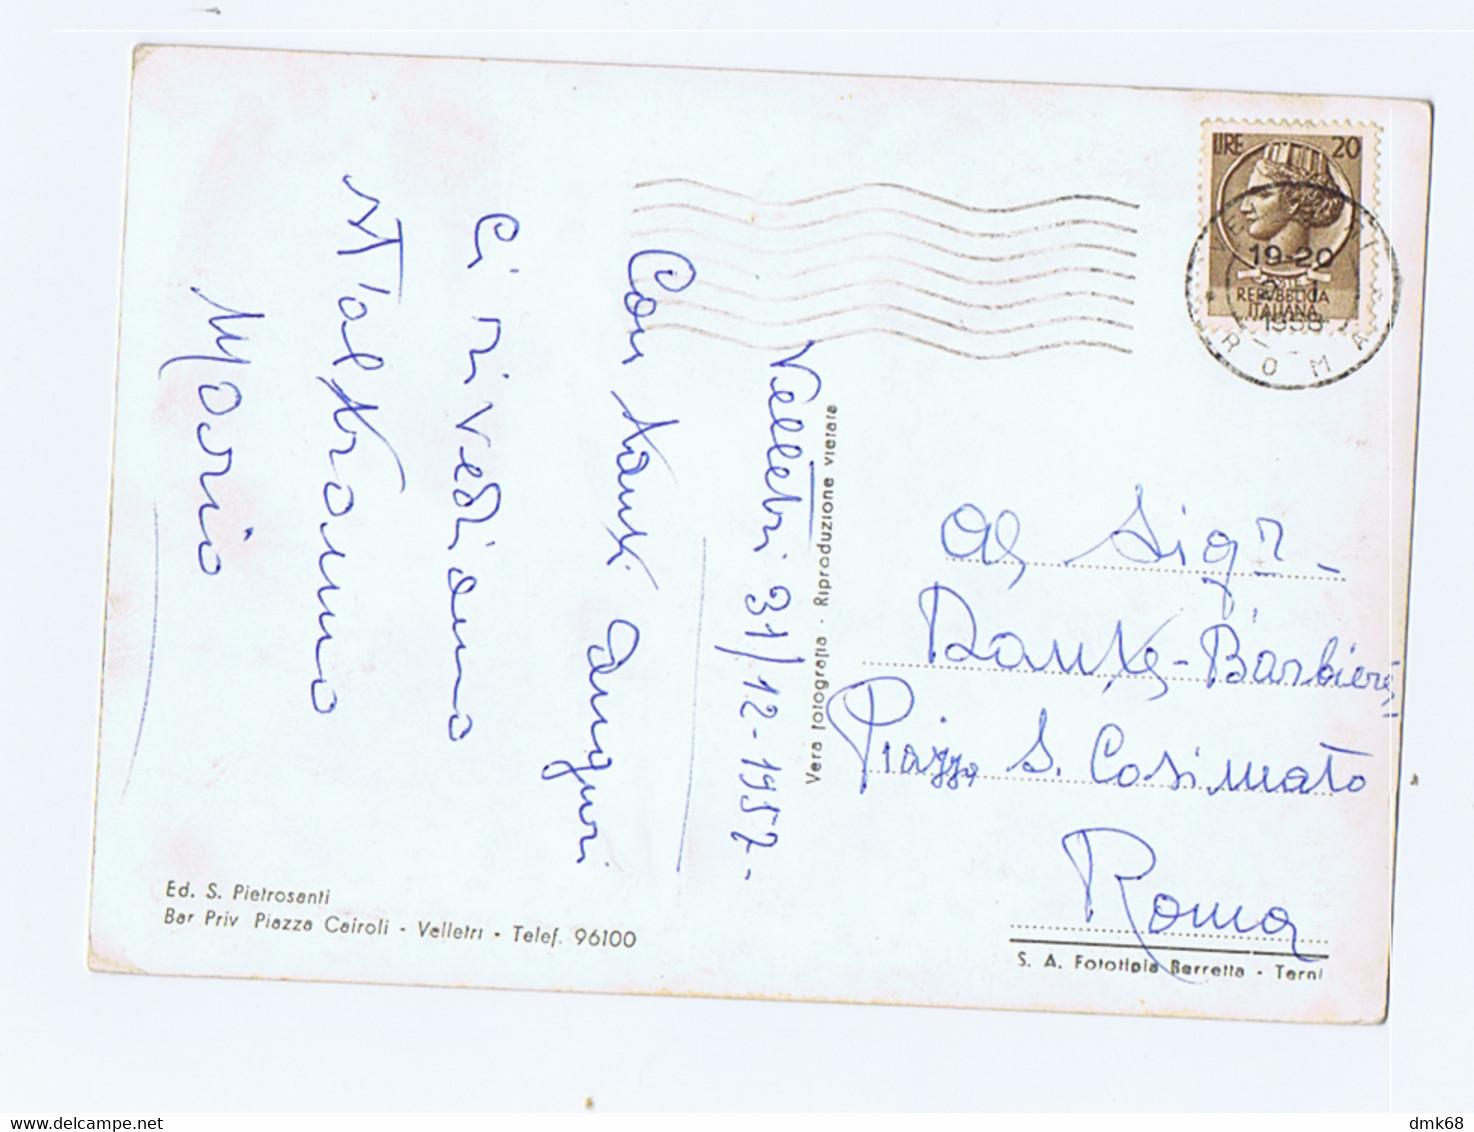 Velletri 31/12-1957-
Con tanti auguri
Ci rivediamo
Mario
Vera fotografia - Riproduzione vietata
LIRE 20
POSTE
REPVBBLICA
ITALIANA
19-20
1958
ROMA
Al Sigr
Dante Barbieri
Piazza S. Cosimato
Roma
Ed. S. Pietrosanti
Bar Priv Piazza Cairoli - Velletri - Telef. 96100
S. A. Fototipia Berretta - Terni
www.delcampe.net
dmk68